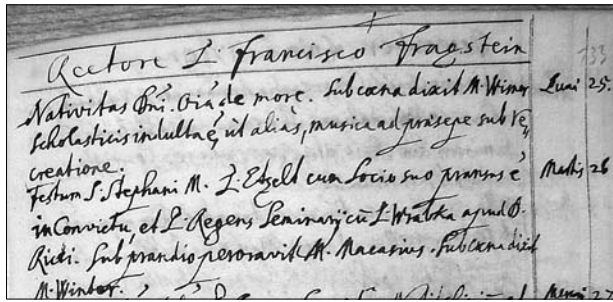 Rectore P. Francisco Fragstein
133
Nativitas Dni. Oia de more. Sub coena dixit M. Winter Lunae 25.
Scholasticis indulta ē, ut alias, musica ad praesepe sub re,,
creatione.
Festum S. Stephani M. P. Etzelt cum Socio suo pransus ē Martis 26
in Convictu, et P. Regens Seminarij cū P. Wrabka apud P.
Sub prandio peroravit M. Macasius. Sub coena dixit
M. Winter.